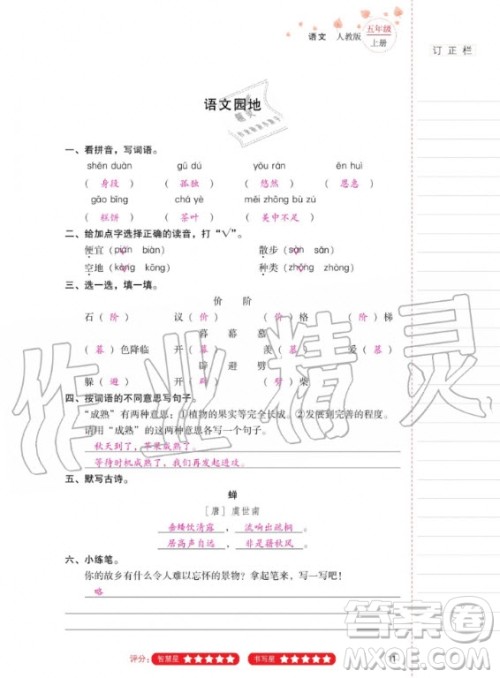 语文 人教版 五年级上册
订正栏
语文园地
一、看拼音，写词语。
shēn duàn gū dú yōu rán ēn huì
（ 身段 ）（ 孤独 ）（ 悠然 ）（ 恩惠 ）
gāo bǐng chá yè měi zhōng bù zú
（ 糕饼 ）（ 茶叶 ）（ 美中不足 ）
二、给加点字选择正确的读音，打“√”。
便宜（pián biàn） 散步（sàn sǎn）
空地（kòng kōng） 种类（zhǒng zhòng）
三、选一选，填一填。
价 阶
石（ 阶 ） 议（ 价 ） 价（ ）格 阶（ ）梯
幕 慕 暮
（ 暮 ）色降临 开（ 幕 ）
躲（ 避 ） 开（ 辟 ）
四、按词语的不同意思写句子。
“成熟”有两种意思：①植物的果实等完全长成。②发展到完善的程度。
请用“成熟”的这两种意思各写一个句子。
秋天到了，苹果成熟了。
等待时机成熟了，我们再发起进攻。
五、默写古诗。
蝉
［唐］虞世南
垂緌饮清露， 流响出疏桐。
居高声自远， 非是藉秋风。
六、小练笔。
你的故乡有什么令人难以忘怀的景物？拿起笔来，写一写吧！
略
评分：智慧星 ★★★★★ 书写星 ★★★★★
11
作业精灵
答案圈